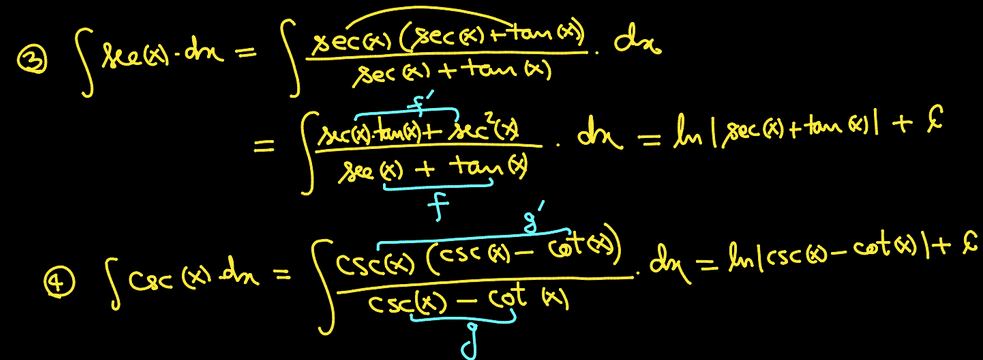 ③ ∫ sec(x)·dx = ∫ sec(x) (sec(x)+tan(x)) / sec(x)+tan(x) · dx
f'
= ∫ sec(x)·tan(x)+sec²(x) / sec(x) + tan(x) · dx = ln|sec(x)+tan(x)| + C
f
g'
④ ∫ csc(x)·dx = ∫ csc(x) (csc(x) − cot(x)) / csc(x) − cot(x) · dx = ln|csc(x) − cot(x)| + C
g